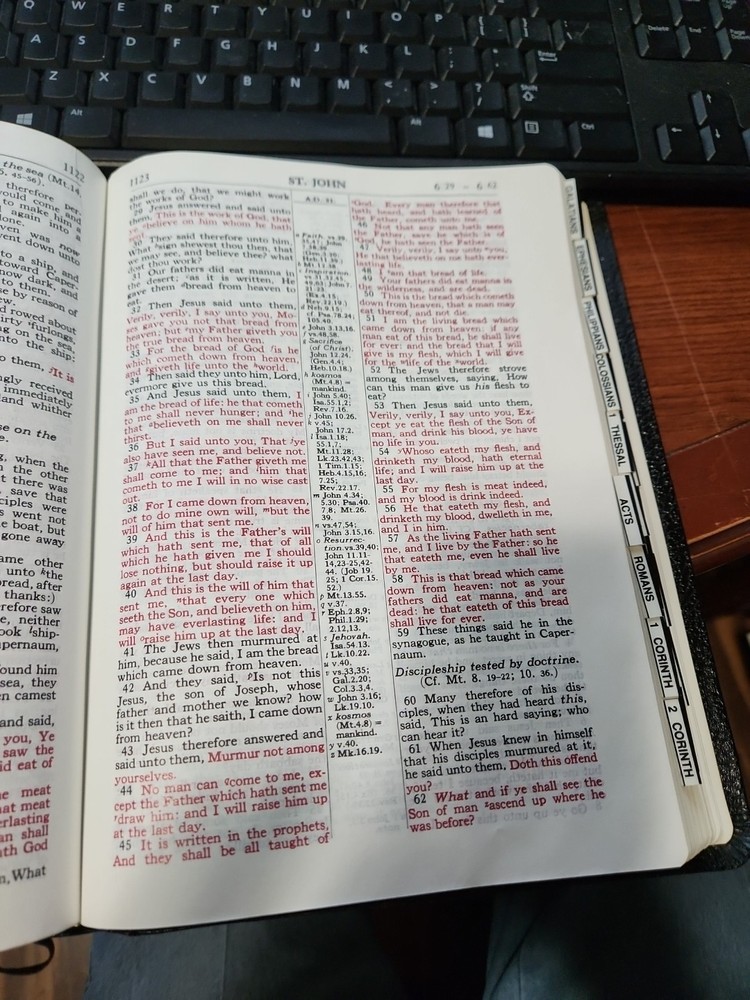 Q W E R T Y U I O P
A S D F G H J K L
Z X C V B N M
Enter
Shift
Alt
Alt
Ctrl
Delete
End
1122
the sea (Mt.14.
1123
ST. JOHN
6 29 – 6 62
shall we do, that we might work
the works of God?
29 Jesus answered and said unto
them, This is the work of God, that
ye believe on him whom he hath
sent.
30 They said therefore unto him,
What sign shewest thou then, that
we may see, and believe thee? what
dost thou work?
31 Our fathers did eat manna in
the desert; as it is written, He
gave them bread from heaven to
eat.
32 Then Jesus said unto them,
Verily, verily, I say unto you, Mo-
ses gave you not that bread from
heaven; but my Father giveth you
the true bread from heaven.
33 For the bread of God is he
which cometh down from heaven,
and giveth life unto the world.
34 Then said they unto him, Lord,
evermore give us this bread.
35 And Jesus said unto them, I
am the bread of life: he that cometh
to me shall never hunger; and he
that believeth on me shall never
thirst.
36 But I said unto you, That ye
also have seen me, and believe not.
37 All that the Father giveth me
shall come to me; and him that
cometh to me I will in no wise cast
out.
38 For I came down from heaven,
not to do mine own will, but the
will of him that sent me.
39 And this is the Father's will
which hath sent me, that of all
which he hath given me I should
lose nothing, but should raise it up
again at the last day.
40 And this is the will of him that
sent me, that every one which
seeth the Son, and believeth on him,
may have everlasting life: and I
will raise him up at the last day.
41 The Jews then murmured at
him, because he said, I am the bread
which came down from heaven.
42 And they said, Is not this
Jesus, the son of Joseph, whose
father and mother we know? how
is it then that he saith, I came down
from heaven?
43 Jesus therefore answered and
said unto them, Murmur not among
yourselves.
44 No man can come to me, ex-
cept the Father which hath sent me
draw him: and I will raise him up
at the last day.
45 It is written in the prophets,
And they shall be all taught of
A.D. 32.
e John 3.15,16.
f vs.48,58.
g Sacrifice
(of Christ).
John 12.24.
(Gen.4.4;
Heb.10.18.)
h kosmos
(Mt.4.8) =
mankind.
i John 5.40;
Isa.55.1,2;
Rev.7.16.
j John 10.26.
k v.45;
John 17.2.
l Isa.1.18;
55.1,7;
Mt.11.28;
Lk.23.42,43;
1 Tim.1.15;
Heb.4.15,16;
7.25;
Rev.22.17.
m John 4.34;
5.30; Psa.40.
7,8; Mt.26.
39.
n vs.47,54;
John 3.15,16.
o Resurrec-
tion. vs.39,40;
John 11.11-
14,23-25,42-
44. (Job 19.
25; 1 Cor.15.
52.)
p Mt.13.55.
q v.37.
r Eph.2.8,9;
Phil.1.29;
2.12,13.
s Jehovah.
Isa.54.13.
t Lk.10.22.
u v.40.
v vs.33,35;
Gal.2.20;
Col.3.3,4.
w John 3.16;
Lk.19.10.
x kosmos
(Mt.4.8) =
mankind.
y v.40.
z Mk.16.19.
God. Every man therefore that
hath heard, and hath learned of
the Father, cometh unto me.
46 Not that any man hath seen
the Father, save he which is of
God, he hath seen the Father.
47 Verily, verily, I say unto you,
He that believeth on me hath ever-
lasting life.
48 I am that bread of life.
49 Your fathers did eat manna in
the wilderness, and are dead.
50 This is the bread which cometh
down from heaven, that a man may
eat thereof, and not die.
51 I am the living bread which
came down from heaven: if any
man eat of this bread, he shall live
for ever: and the bread that I will
give is my flesh, which I will give
for the life of the world.
52 The Jews therefore strove
among themselves, saying, How
can this man give us his flesh to
eat?
53 Then Jesus said unto them,
Verily, verily, I say unto you, Ex-
cept ye eat the flesh of the Son of
man, and drink his blood, ye have
no life in you.
54 Whoso eateth my flesh, and
drinketh my blood, hath eternal
life; and I will raise him up at the
last day.
55 For my flesh is meat indeed,
and my blood is drink indeed.
56 He that eateth my flesh, and
drinketh my blood, dwelleth in me,
and I in him.
57 As the living Father hath sent
me, and I live by the Father: so he
that eateth me, even he shall live
by me.
58 This is that bread which came
down from heaven: not as your
fathers did eat manna, and are
dead: he that eateth of this bread
shall live for ever.
59 These things said he in the
synagogue, as he taught in Caper-
naum.
Discipleship tested by doctrine.
(Cf. Mt. 8. 19-22; 10. 36.)
60 Many therefore of his dis-
ciples, when they had heard this,
said, This is an hard saying; who
can hear it?
61 When Jesus knew in himself
that his disciples murmured at it,
he said unto them, Doth this offend
you?
62 What and if ye shall see the
Son of man ascend up where he
was before?
GALATIANS
EPHESIANS
PHILIPPIANS
COLOSSIANS
1 THESSAL
ACTS
ROMANS
1 CORINTH
2 CORINTH